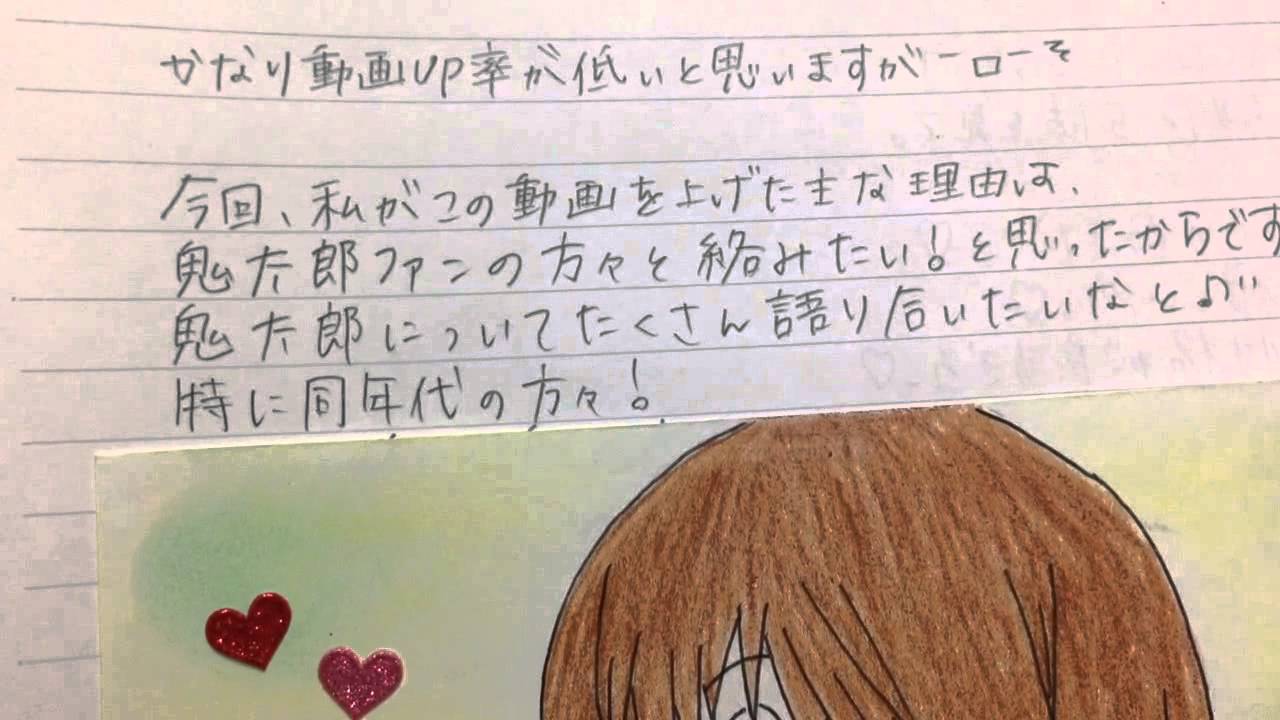 かなり動画UP率が低いと思いますがーローそ
今回、私がこの動画を上げた主な理由は、
鬼太郎ファンの方々と絡みたい!と思ったからです
鬼太郎についてたくさん語り合いたいなと♪
特に同年代の方々!